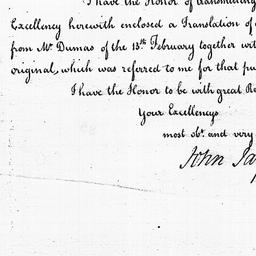 I have the Honor of transmitting
Excellency herewith enclosed a Translation of
from Mr. Dumas of the 13th February together wit
original, which was referred to me for that pu
I have the Honor to be with great Re
Your Excellencys
most obt. and very
John Ja